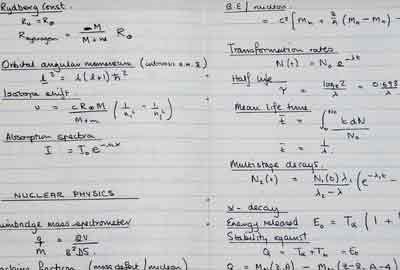 Rydberg Const.
R₀ = R∞
R hydrogen = M / M+m R∞
Orbital angular momentum
l² = l(l+1)ħ²
Isotope shift
υ = cR∞M / M+m (1/n₁² − 1/n₂²)
Absorption spectra
I = I₀e
NUCLEAR PHYSICS
mass spectrometer
q/m = 2V / B²DS
fraction (mass defect/nucleon)
B.E/nucleon
= c² [Mn + Z/A (MH − Mn) −
Transformation rates
N(t) = N₀ e^−λt
Half life
τ = logₑ2 / λ = 0.693
Mean life time
t̄ = ∫ t dN / N₀
t̄ = 1/λ
Multistage decays.
N₂(t) = N₁(0)λ₁ / λ₂ − λ₁ (e^−λ₁t −
α-decay
Energy released E₀ = Tα (1 +
Stability against
Q = Tα + Tb = E₀
Q = M (Z,A) − M (Z-2, A-4)